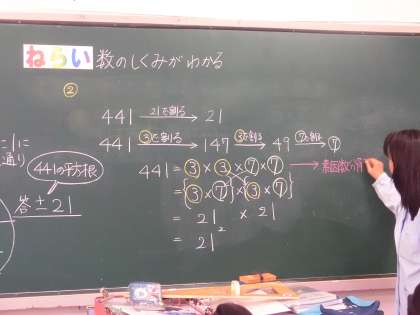 ねらい 数のしくみがわかる
②
441 21で割る→ 21
441 ③で割る→ 147 ③で割る→ 49 ⑦で割る→ ⑦
441 = ③ × ③ × ⑦ × ⑦ → 素因数
= {③ × ⑦} × {③ × ⑦}
= 21 × 21
= 21²
通り
441の平方根
答 ±21